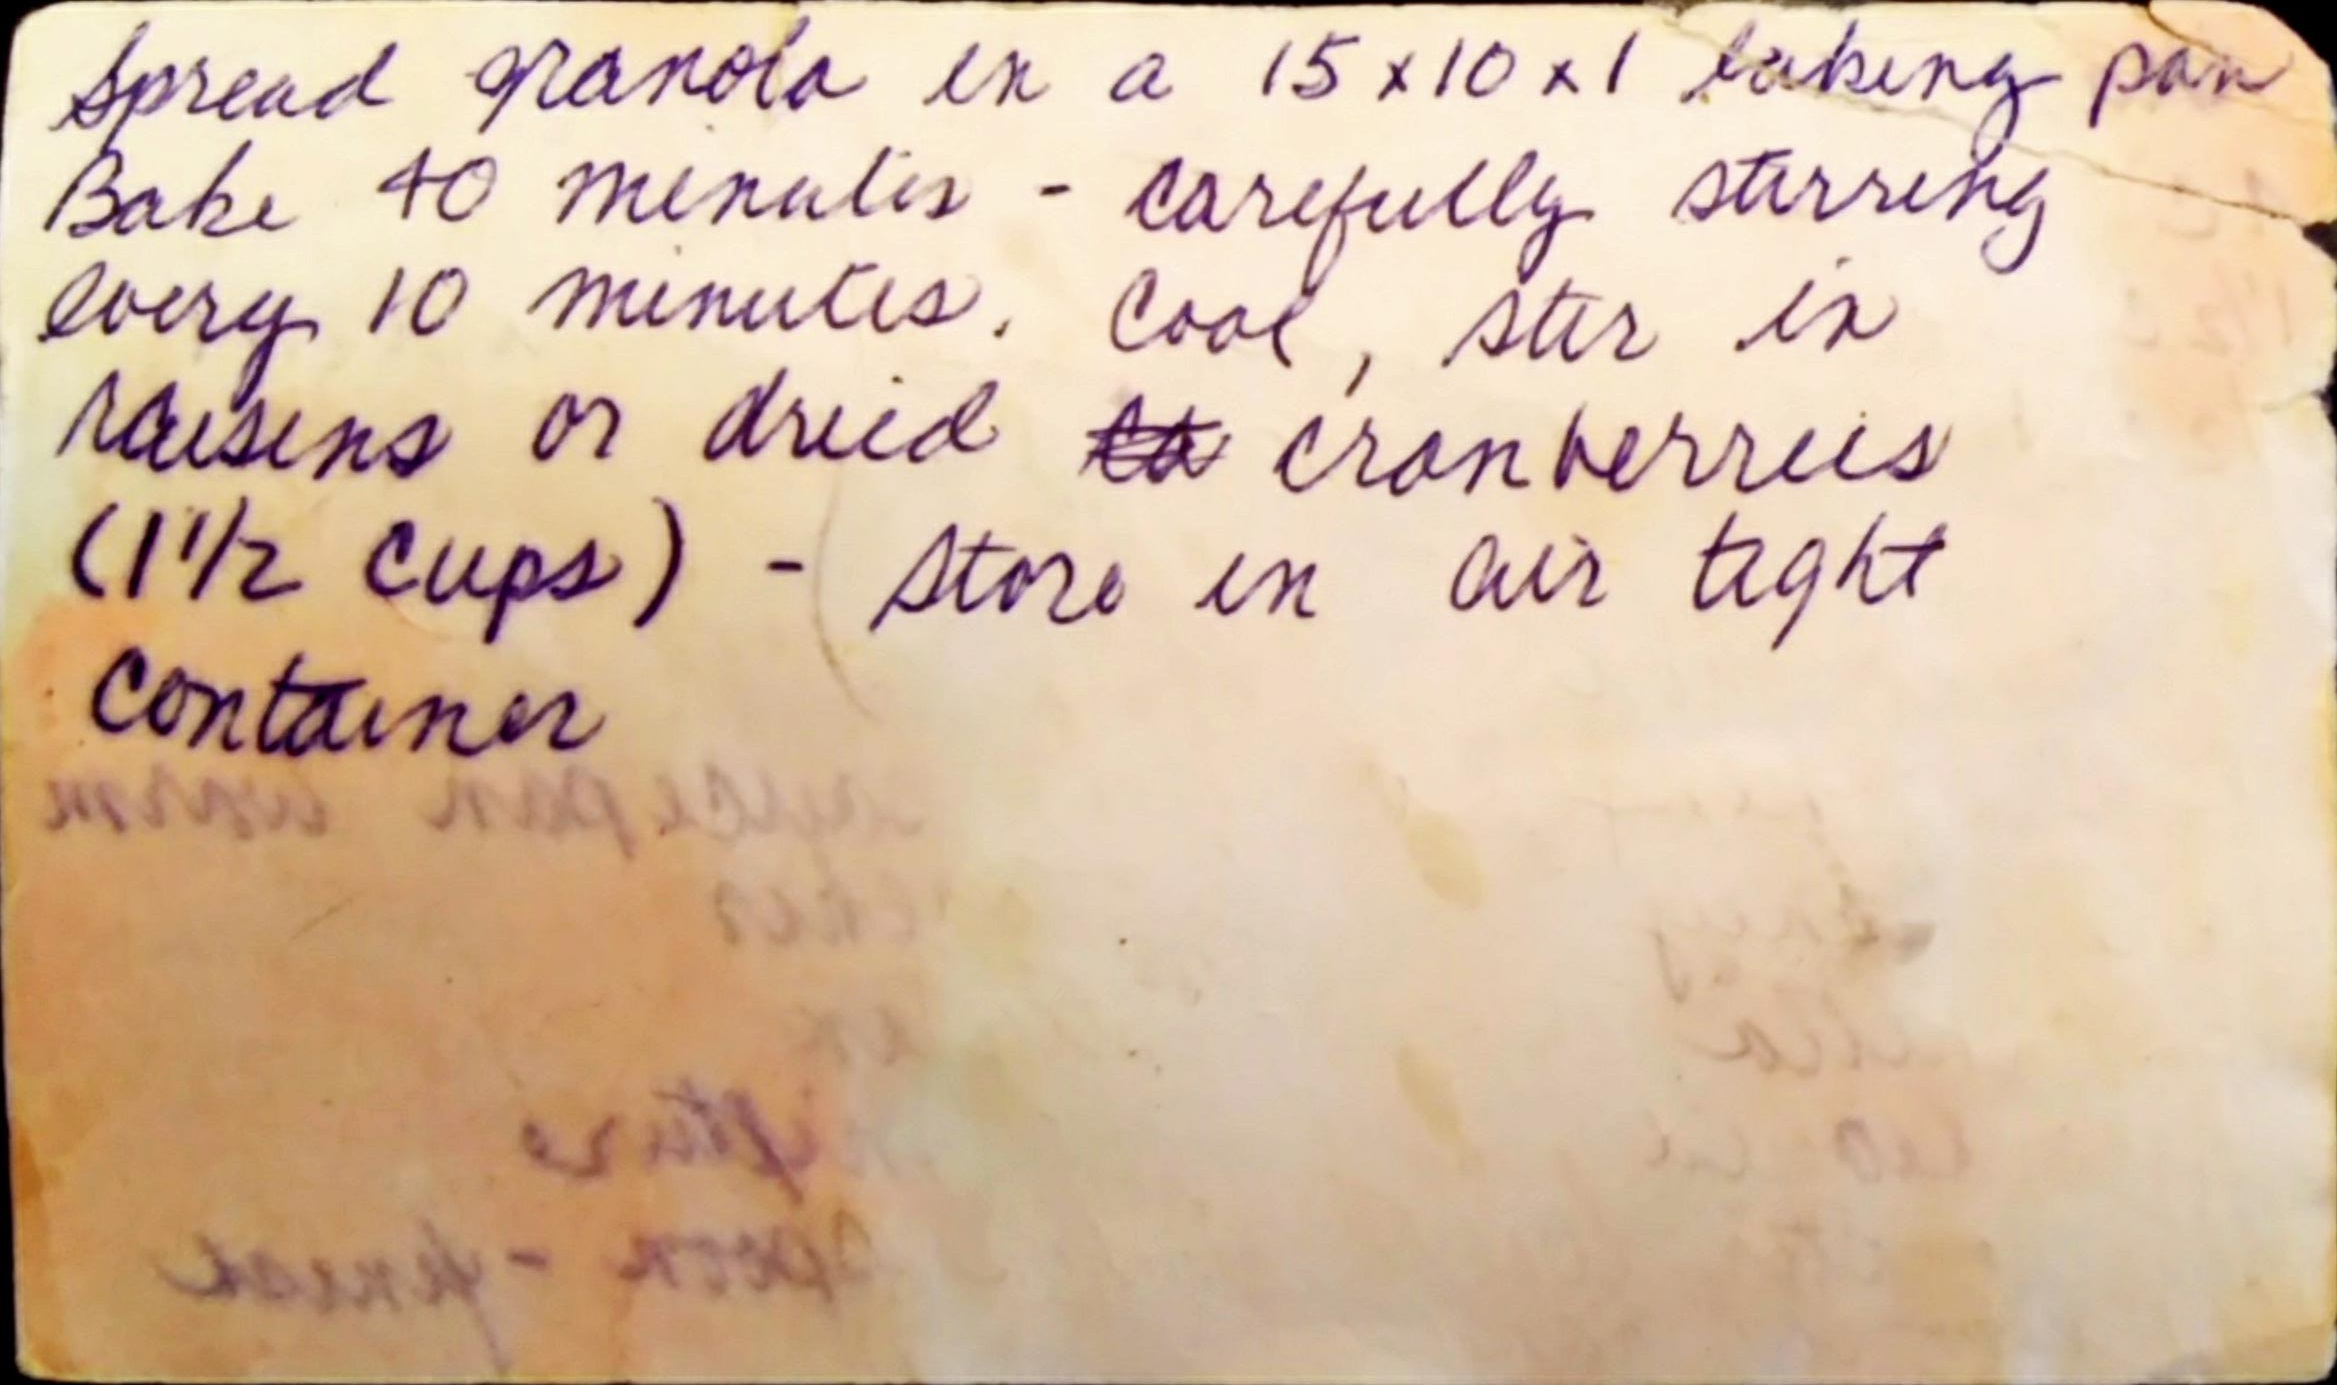 Spread granola in a 15 x 10 x 1 baking pan
Bake 40 minutes - carefully stirring
every 10 minutes. Cool, stir in
raisins or dried cranberries
(1 1/2 cups) - Store in air tight
container